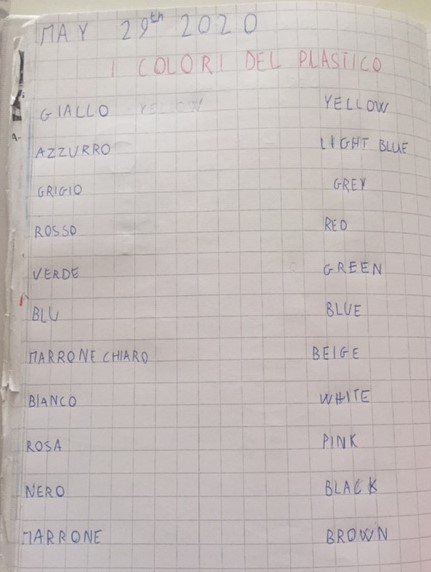 MAY 29th 2020
I COLORI DEL PLASTICO
GIALLO YELLOW YELLOW
AZZURRO LIGHT BLUE
GRIGIO GREY
ROSSO RED
VERDE GREEN
BLU BLUE
MARRONE CHIARO BEIGE
BIANCO WHITE
ROSA PINK
NERO BLACK
MARRONE BROWN